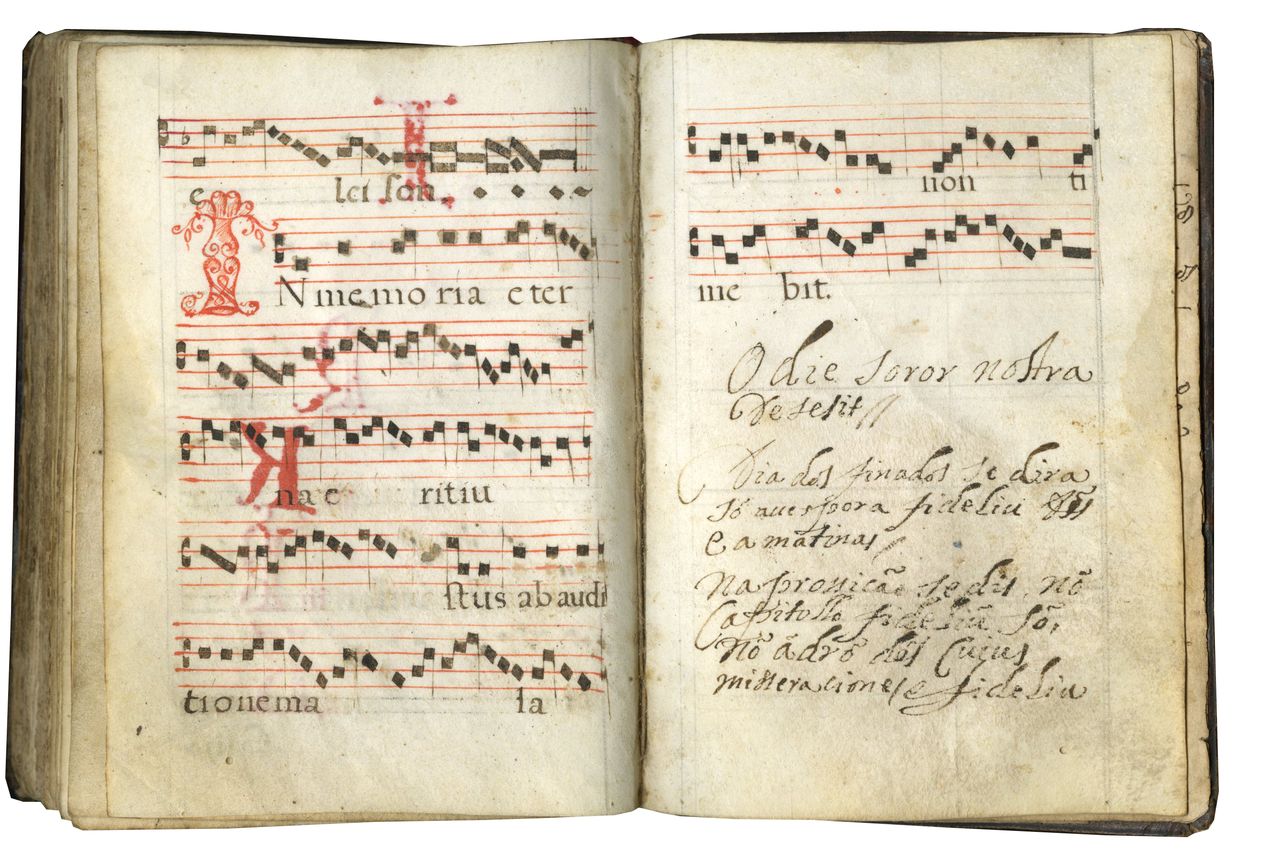 e lei son.
IN memoria eter
na e ritiu
stus ab audi
tionem a la
non ti
me bit.
Odie soror nostra
desesit
Dia dos finados se dira
só nuespora fideliu
e a matinas
Na prossicaõ se dis nõ
Capitollo fideliũ só,
nõ ádrõ dos Cuius
misseraciones e fideliu